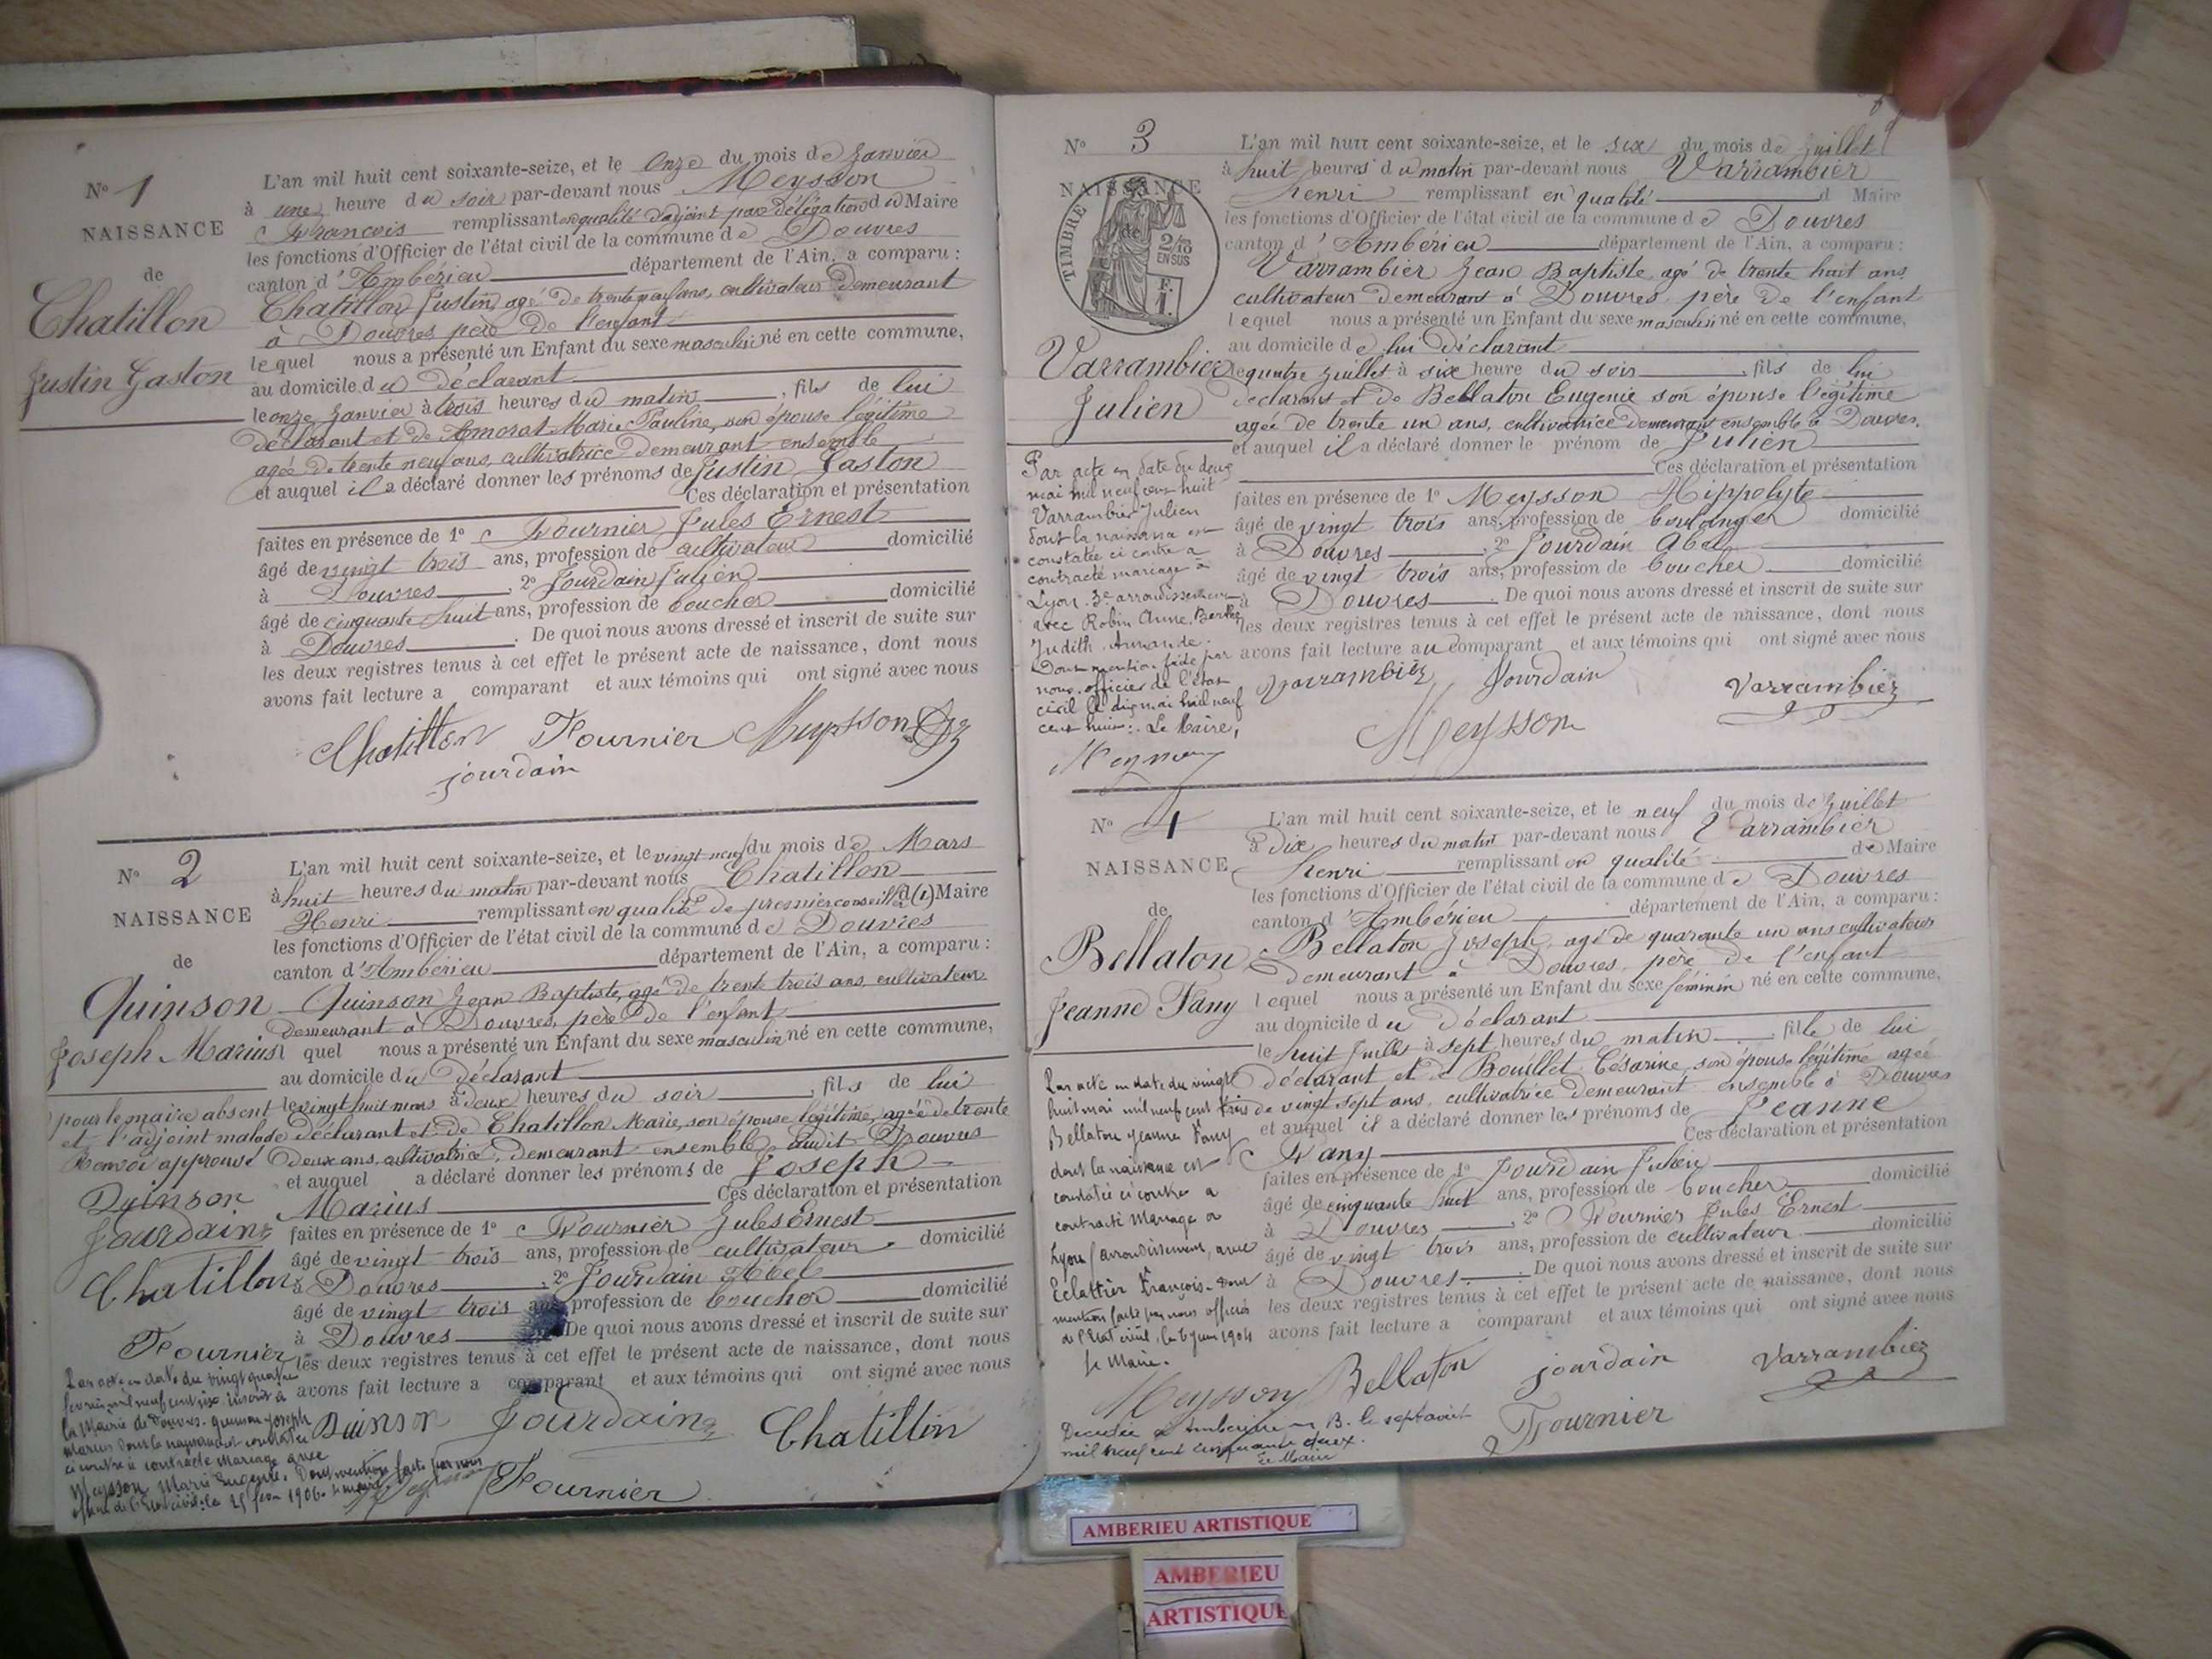 N° 1
NAISSANCE
de
Chatillon
Justin Gaston
L'an mil huit cent soixante-seize, et le onze du mois de Janvier
à une heure du soir par-devant nous Meysson
François remplissant en qualité d'adjoint par délégation du Maire
les fonctions d'Officier de l'état civil de la commune de Douvres
canton d'Ambérieu département de l'Ain, a comparu :
Chatillon Justin, agé de trente neuf ans, cultivateur demeurant
à Douvres père de l'enfant
lequel nous a présenté un Enfant du sexe masculin né en cette commune,
au domicile du déclarant
le onze Janvier à trois heures du matin , fils de lui
déclarant et de Amorat Marie Pauline, son épouse légitime
agée de trente neuf ans, cultivatrice demeurant ensemble
et auquel il a déclaré donner les prénoms de Justin Gaston
Ces déclaration et présentation
faites en présence de 1° Fournier Jules Ernest
âgé de vingt trois ans, profession de cultivateur domicilié
à Douvres , 2° Jourdain Julien
âgé de cinquante huit ans, profession de boucher domicilié
à Douvres . De quoi nous avons dressé et inscrit de suite sur
les deux registres tenus à cet effet le présent acte de naissance, dont nous
avons fait lecture a comparant et aux témoins qui ont signé avec nous
Chatillon Fournier Meysson
jourdain
N° 2
NAISSANCE
de
Quinson
Joseph Marius
L'an mil huit cent soixante-seize, et le vingt neuf du mois de Mars
à huit heures du matin par-devant nous Chatillon
Henri remplissant en qualité de premier conseiller d (1) Maire
les fonctions d'Officier de l'état civil de la commune de Douvres
canton d'Ambérieu département de l'Ain, a comparu :
Quinson Jean Baptiste, agé de trente trois ans, cultivateur
demeurant à Douvres, père de l'enfant
l quel nous a présenté un Enfant du sexe masculin né en cette commune,
au domicile du déclarant
le vingt huit mars à deux heures du soir , fils de lui
déclarant et de Chatillon Marie, son épouse légitime, agée de trente
deux ans, cultivatrice, demeurant ensemble audit Douvres
et auquel a déclaré donner les prénoms de Joseph
Marius Ces déclaration et présentation
faites en présence de 1° Fournier Jules Ernest
âgé de vingt trois ans, profession de cultivateur domicilié
à Douvres , 2° Jourdain Abel
âgé de vingt trois ans, profession de boucher domicilié
à Douvres De quoi nous avons dressé et inscrit de suite sur
les deux registres tenus à cet effet le présent acte de naissance, dont nous
avons fait lecture a comparant et aux témoins qui ont signé avec nous
pour le maire absent
et l'adjoint malade
Renvoi approuvé
Quinson
Jourdain
Chatillon
Fournier
Par acte en date du vingt quatre
février mil neuf cent six inscrit à
la Mairie de Douvres. quinson joseph
marius dont la naissance est constatée
ci contre a contracté mariage avec
Meysson Marie Eugénie. Dont mention faite par nous
officier de l'Etat civil. le 25 février 1906. le maire
Quinson Jourdain Chatillon
Fournier
N° 3
NAISSANCE
TIMBRE
de
2/10
EN SUS
F.
1.
Varrambier
Julien
L'an mil huit cent soixante-seize, et le six du mois de Juillet
à huit heures du matin par-devant nous Varrambier
henri remplissant en qualité d Maire
les fonctions d'Officier de l'état civil de la commune de Douvres
canton d'Ambérieu département de l'Ain, a comparu :
Varrambier Jean Baptiste agé de trente huit ans
cultivateur demeurant à Douvres père de l'enfant
lequel nous a présenté un Enfant du sexe masculin né en cette commune,
au domicile de lui déclarant
le quatre Juillet à six heure du soir , fils de lui
declarant et de Bellaton Eugénie son épouse légitime
agée de trente un ans, cultivatrice demeurant ensemble à Douvres,
et auquel il a déclaré donner le prénom de Julien
Ces déclaration et présentation
faites en présence de 1° Meysson Hippolyte
âgé de vingt trois ans, profession de boulanger domicilié
à Douvres , 2° Jourdain Abel
âgé de vingt trois ans, profession de boucher domicilié
à Douvres . De quoi nous avons dressé et inscrit de suite sur
les deux registres tenus à cet effet le présent acte de naissance, dont nous
avons fait lecture au comparant et aux témoins qui ont signé avec nous
Par acte en date du deux
mai mil neuf cent huit
Varrambier Julien
dont la naissance est
constatée ci contre a
contracté mariage à
Lyon 3e arrondissement
avec Robin Anne Berthe
Judith Armande.
Dont mention faite par
nous, officier de l'état
civil le dix mai mil neuf
cent huit. Le Maire,
varrambier Jourdain varrambier
Meysson
N° 4
NAISSANCE
de
Bellaton
Jeanne Fany
L'an mil huit cent soixante-seize, et le neuf du mois de Juillet
à dix heures du matin par-devant nous Varrambier
henri remplissant en qualité de Maire
les fonctions d'Officier de l'état civil de la commune de Douvres
canton d'Ambérieu département de l'Ain, a comparu :
Bellaton Joseph, agé de quarante un ans cultivateur
demeurant à Douvres, père de l'enfant
lequel nous a présenté un Enfant du sexe féminin né en cette commune,
au domicile du déclarant
le huit Juillet à sept heures du matin , fille de lui
déclarant et de Bouillet Césarine, son épouse légitime agée
de vingt sept ans, cultivatrice demeurant ensemble à Douvres
et auquel il a déclaré donner les prénoms de Jeanne
Fany Ces déclaration et présentation
faites en présence de 1° Jourdain Julien
âgé de cinquante huit ans, profession de boucher domicilié
à Douvres , 2° Fournier Jules Ernest
âgé de vingt trois ans, profession de cultivateur domicilié
à Douvres . De quoi nous avons dressé et inscrit de suite sur
les deux registres tenus à cet effet le présent acte de naissance, dont nous
avons fait lecture a comparant et aux témoins qui ont signé avec nous
Par acte en date du vingt
huit mai mil neuf cent trois
Bellaton jeanne Fany
dont la naissance est
constatée ci contre a
contracté mariage a
Lyon arrondissement, avec
Eclattier François. dont
mention faite par nous officier
de l'Etat civil, le 6 juin 1904
le Maire.
Meysson Bellaton jourdain varrambier
Fournier
Décédée à Ambérieu en B. le sept août
mil neuf cent cinquante deux.
Le Maire
AMBERIEU ARTISTIQUE
AMBERIEU
ARTISTIQUE